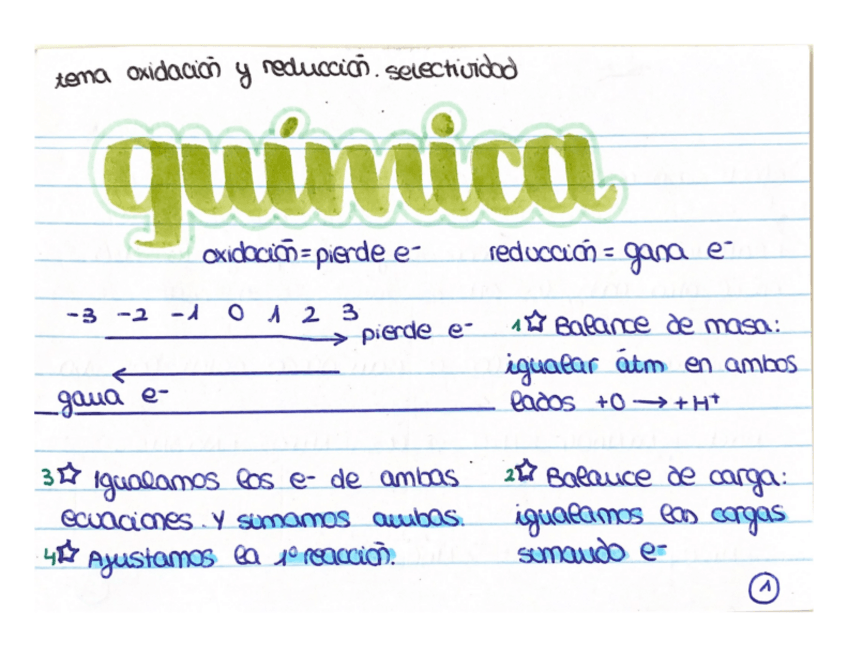 tema oxidación y reducción. selectividad
química
oxidación = pierde e-
reducción = gana e-
-3 -2 -1 0 1 2 3
pierde e-
gana e-
1☆ Balance de masa:
igualar átm en ambos
lados +O → +H+
2☆ Balance de carga:
igualamos las cargas
sumando e-
3☆ Igualamos los e- de ambas
ecuaciones. Y sumamos ambas.
4☆ Ajustamos la 1º reacción.
1